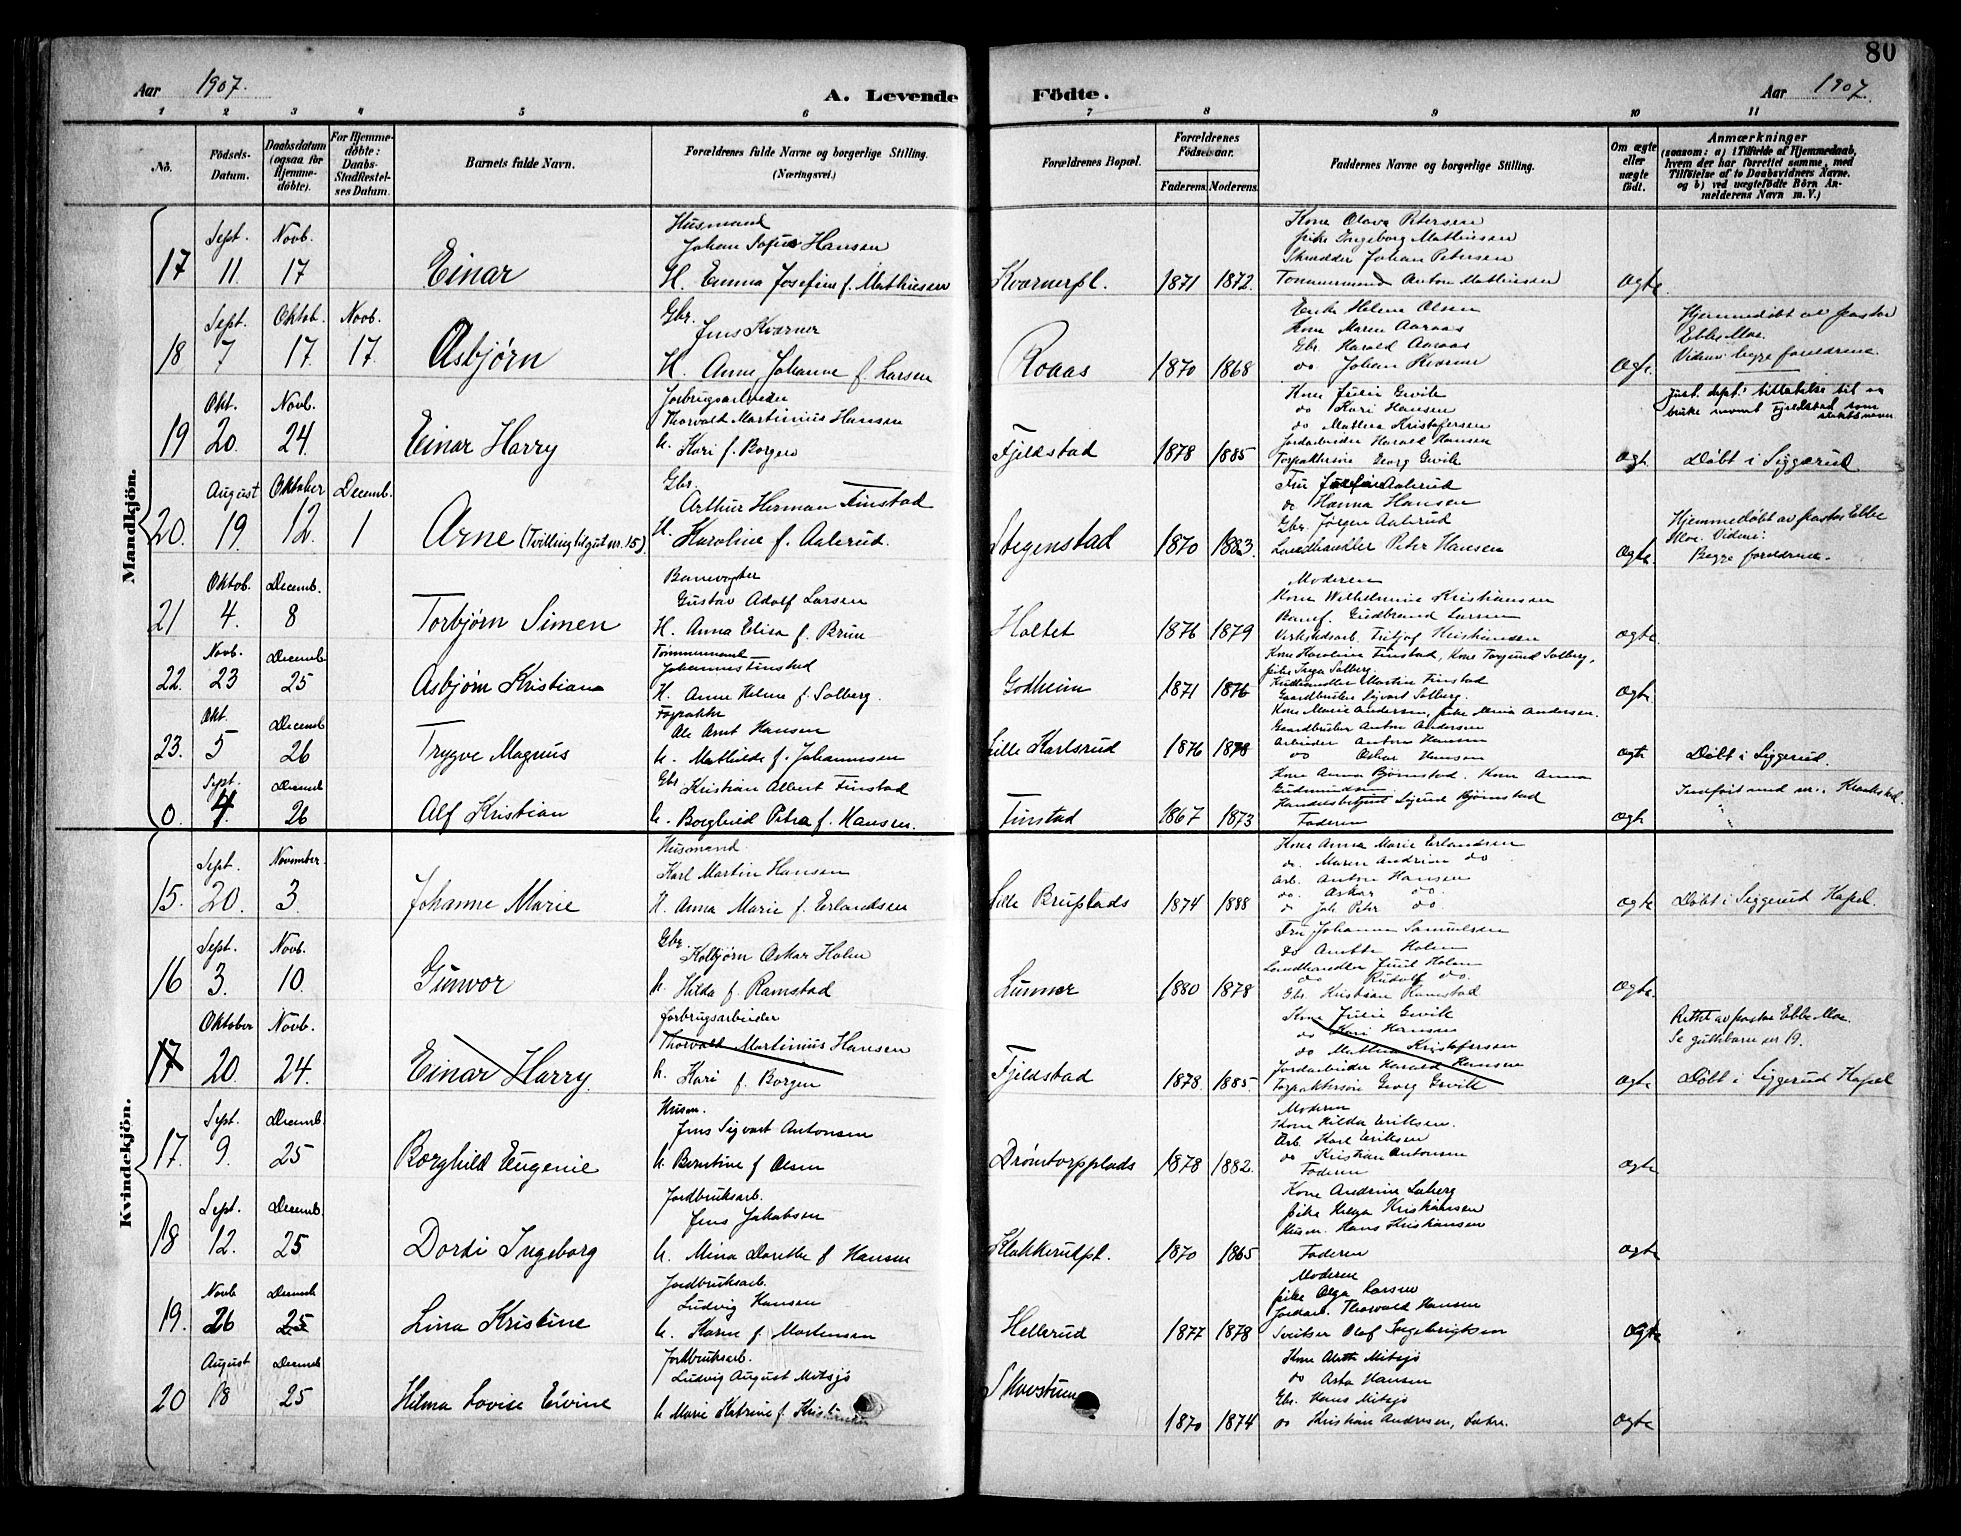 80
Aar 1907.
A. Levende Födte.
Aar 1907.
1 2 3 4 5 6 7 8 9 10 11
No.
Födsels-Datum.
Daabsdatum (ogsaa for Hjemme-döbte).
For Hjemme-döbte: Daabs-Stadfæstel-ses Datum.
Barnets fulde Navn.
Forældrenes fulde Navne og borgerlige Stilling.
(Næringsvei.)
Forældrenes Bopæl.
Forældrenes Födselsaar.
Faderens. Moderens.
Faddernes Navne og borgerlige Stilling.
Om ægte eller uægte födt.
Anmærkninger
(saasom: a) i Tilfælde af Hjemmedaab, hvem der har forrettet samme, med Tilföielse af to Daabsvidners Navne. og b) ved uægtefödte Börn An-melderens Navn m. V.)
Mandkjön.
17 Sept. 11 Novb. 17
Einar
Husmand
Johan Sofus Hansen
H. Emma Josefine f. Mathiesen
Kværnerpl.
1871 1872
Kone Olava Petersen
pike Ingeborg Mathiesen
Skrædder Johan Petersen
Tømmermand Anton Mathiesen
ægte
18 Sept. 7 Oktob. 17 Novb. 17.
Asbjørn
Gbr.
Jens Kværner
H. Anne Johanne f. Larsen
Roaas
1870 1868
Enke Helene Olsen
Kone Maren Aaraas
Gbr. Harald Aaraas
do Johan Kværner
ægte
Hjemmedøbt av pastor
Ebbe Moe.
Vidner begge forældrene.
19 Okt. 20. Novb. 24.
Einar Harry
Forbrugsarbeider
Thorvald Martinius Hansen
h. Kari f. Borgen
Fjeldstad
1878 1885
Kone Julie Gevik
do Kari Hansen
do Mathea Kristofersen
Jordarbeider Harald Hansen
Forpaktersøn Georg Gevik
ægt
just. dept.s tillatelse til at
bruke navnet Fjeldstad som
slektsnavn
Døbt i Siggerud
20. August 19. Oktober 12. Decemb. 1
Arne (Tvilling til gut nr. 15).
Gbr.
Arthur Herman Finstad
H. Karoline f. Aalerud.
Stegenstad
1870 1883.
Fru Josefine Aalerud
do Hanna Hansen
Gbr. Jørgen Aalerud
Landhandler Peter Hansen
ægte
Hjemmedøbt av pastor Ebbe
Moe. Vidner:
Begge forældrene.
21 Oktob. 4. Decemb. 8
Torbjørn Simen
Banevogter
Gustav Adolf Larsen
H. Anna Elisa f. Brun
Holtet
1876 1879
Moderen
Kone Wilhelmine Kristiansen
Banef. Gudbrand Larsen
Verkstedsarb. Fritjof Kristiansen
ægte
22. Novb. 23 Decemb. 25
Asbjørn Kristian
Tømmermand
Johannes Finstad
H. Anne Helene f. Solberg.
Godheim
1871 1876
Kone Karoline Finstad, Kone Torgund Solberg,
pike Inga Solberg.
Kudhandler Martin Finstad
Gaardbruker Sigvart Solberg.
ægte
23. Okt. 5 Decemb. 26
Trygve Magnus
Forpakter
Ole Arnt Hansen
h. Mathilde f. Johannesen
Lille Karlsrud
1876 1878
Kone Marie Andersen, pike Maria Andersen.
Gaardbruker Anton Andersen
Arbeider Anton Hansen
do Oskar Hansen
ægte
Døbt i Siggerud.
0. Sept. 4. Decemb 26
Alf Kristian
Gbr. Kristian Albert Finstad
h. Borghild Petra f. Hansen.
Finstad
1867 1873
Kone Anna Bjørnstad. Kone Anna
Gudmundsen
Handelsbetjent Sigurd Bjørnstad
Faderen
ægte
Indført med nr. i Kraakstad.
Kvindekjön.
15. Sept. 20. November 3.
Johanne Marie
Husmand
Karl Martin Hansen
H. Anna Marie f. Erlandsen
Sde Bruplads
1874 1888
Kone Anna Marie Erlandsen
do. Maren Andrine do
Arb. Anton Hansen
do. Oskar do.
do Joh. Petr do.
ægte
Døbt i Siggerud Kapel.
16 Sept. 3. Novb. 10.
Gunvor
Gbr.
Kolbjørn Oskar Holm
h. Hilda f. Ramstad
Lunner
1880 1878
Fru Johanne Samuelsen
do Anette Holm
Landhandler Juul Holm
do Rudolf do.
Gbr. Kristian Ramstad
ægte.
17 Oktober 20. Novb. 24.
Einar Harry
forbrugsarbeider
Thorvald Martinius Hansen
h. Kari f. Borgen
Fjeldstad
1878. 1885.
Kone Julie Gevik
do Kari Hansen
do Mathea Kristofersen
Jordarbeider Harald Hansen
Forpaktersøn Georg Gevik
ægte
Rettet av pastor Ebbe Moe.
Se guttebarn nr 19.
Døbt i Siggerud Kapel
17. Sept. 9. Decemb. 25
Borghild Eugenie
Husm.
Jens Sigvart Antonsen
h. Berntine f. Olsen
Drømtorpplads
1878 1882.
Moderen
Kone Hilda Eriksen.
Arb. Karl Eriksen
do Kristian Antonsen
Faderen
ægte
18 Sept. 12. Decemb. 25
Dordi Ingeborg
Jordbruksarb.
Jens Jakobsen
h. Mina Dorethe f Hansen
Klokkerudpl.
1870 1865
Kone Andrine Saberg
pike Helga Kristiansen
Husm. Hans Kristiansen
Faderen
ægte
19. Novb 26 Decemb 25
Lina Kristine
Jordbruksarb.
Ludvig Hansen
h. Karen f. Mortensen
Hellerud
1877 1878
Moderen
pike Olga Larsen
Jordarb. Thorvald Hansen
Sveitser Olaf Ingebrigtsen
ægte
20 August 18 Decemb 25
Hilma Lovise Ervine
Jordbruksarb.
Ludvig August Mitsjø
h Marie Katrine f. Kristiansen
Skovstuen
1870 1874
Kone Alette Mitsjø
do Asta Hansen
Gbr. Hans Mitsjø
do Kristian Andresen,
ægte